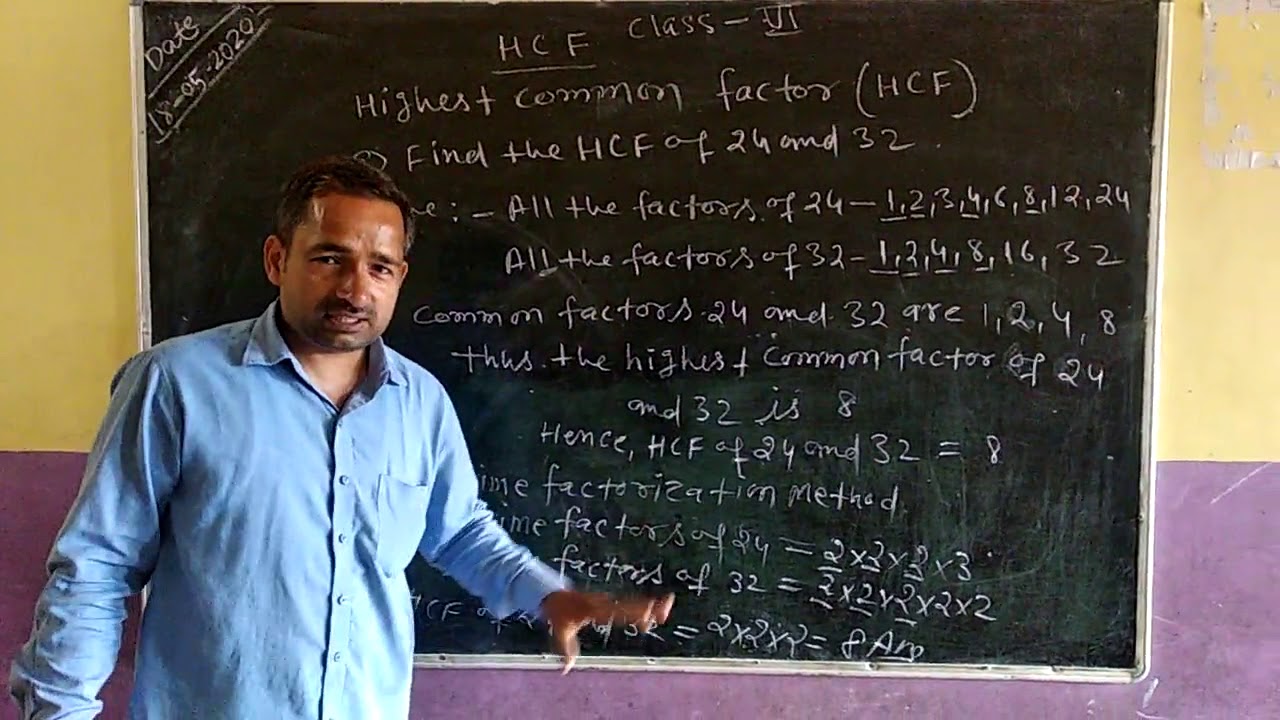 Date
18-05-2020
HCF Class-VI
Highest common factor (HCF)
Find the HCF of 24 and 32.
:- All the factors of 24 - 1,2,3,4,6,8,12,24
All the factors of 32 - 1,2,4,8,16,32
common factors 24 and 32 are 1,2,4,8
thus the highest common factor of 24
and 32 is 8
Hence, HCF of 24 and 32 = 8
factorization Method
factors of 24 = 2x2x2x3
factors of 32 = 2x2x2x2x2
HCF 32 = 2x2x2 = 8 Ans